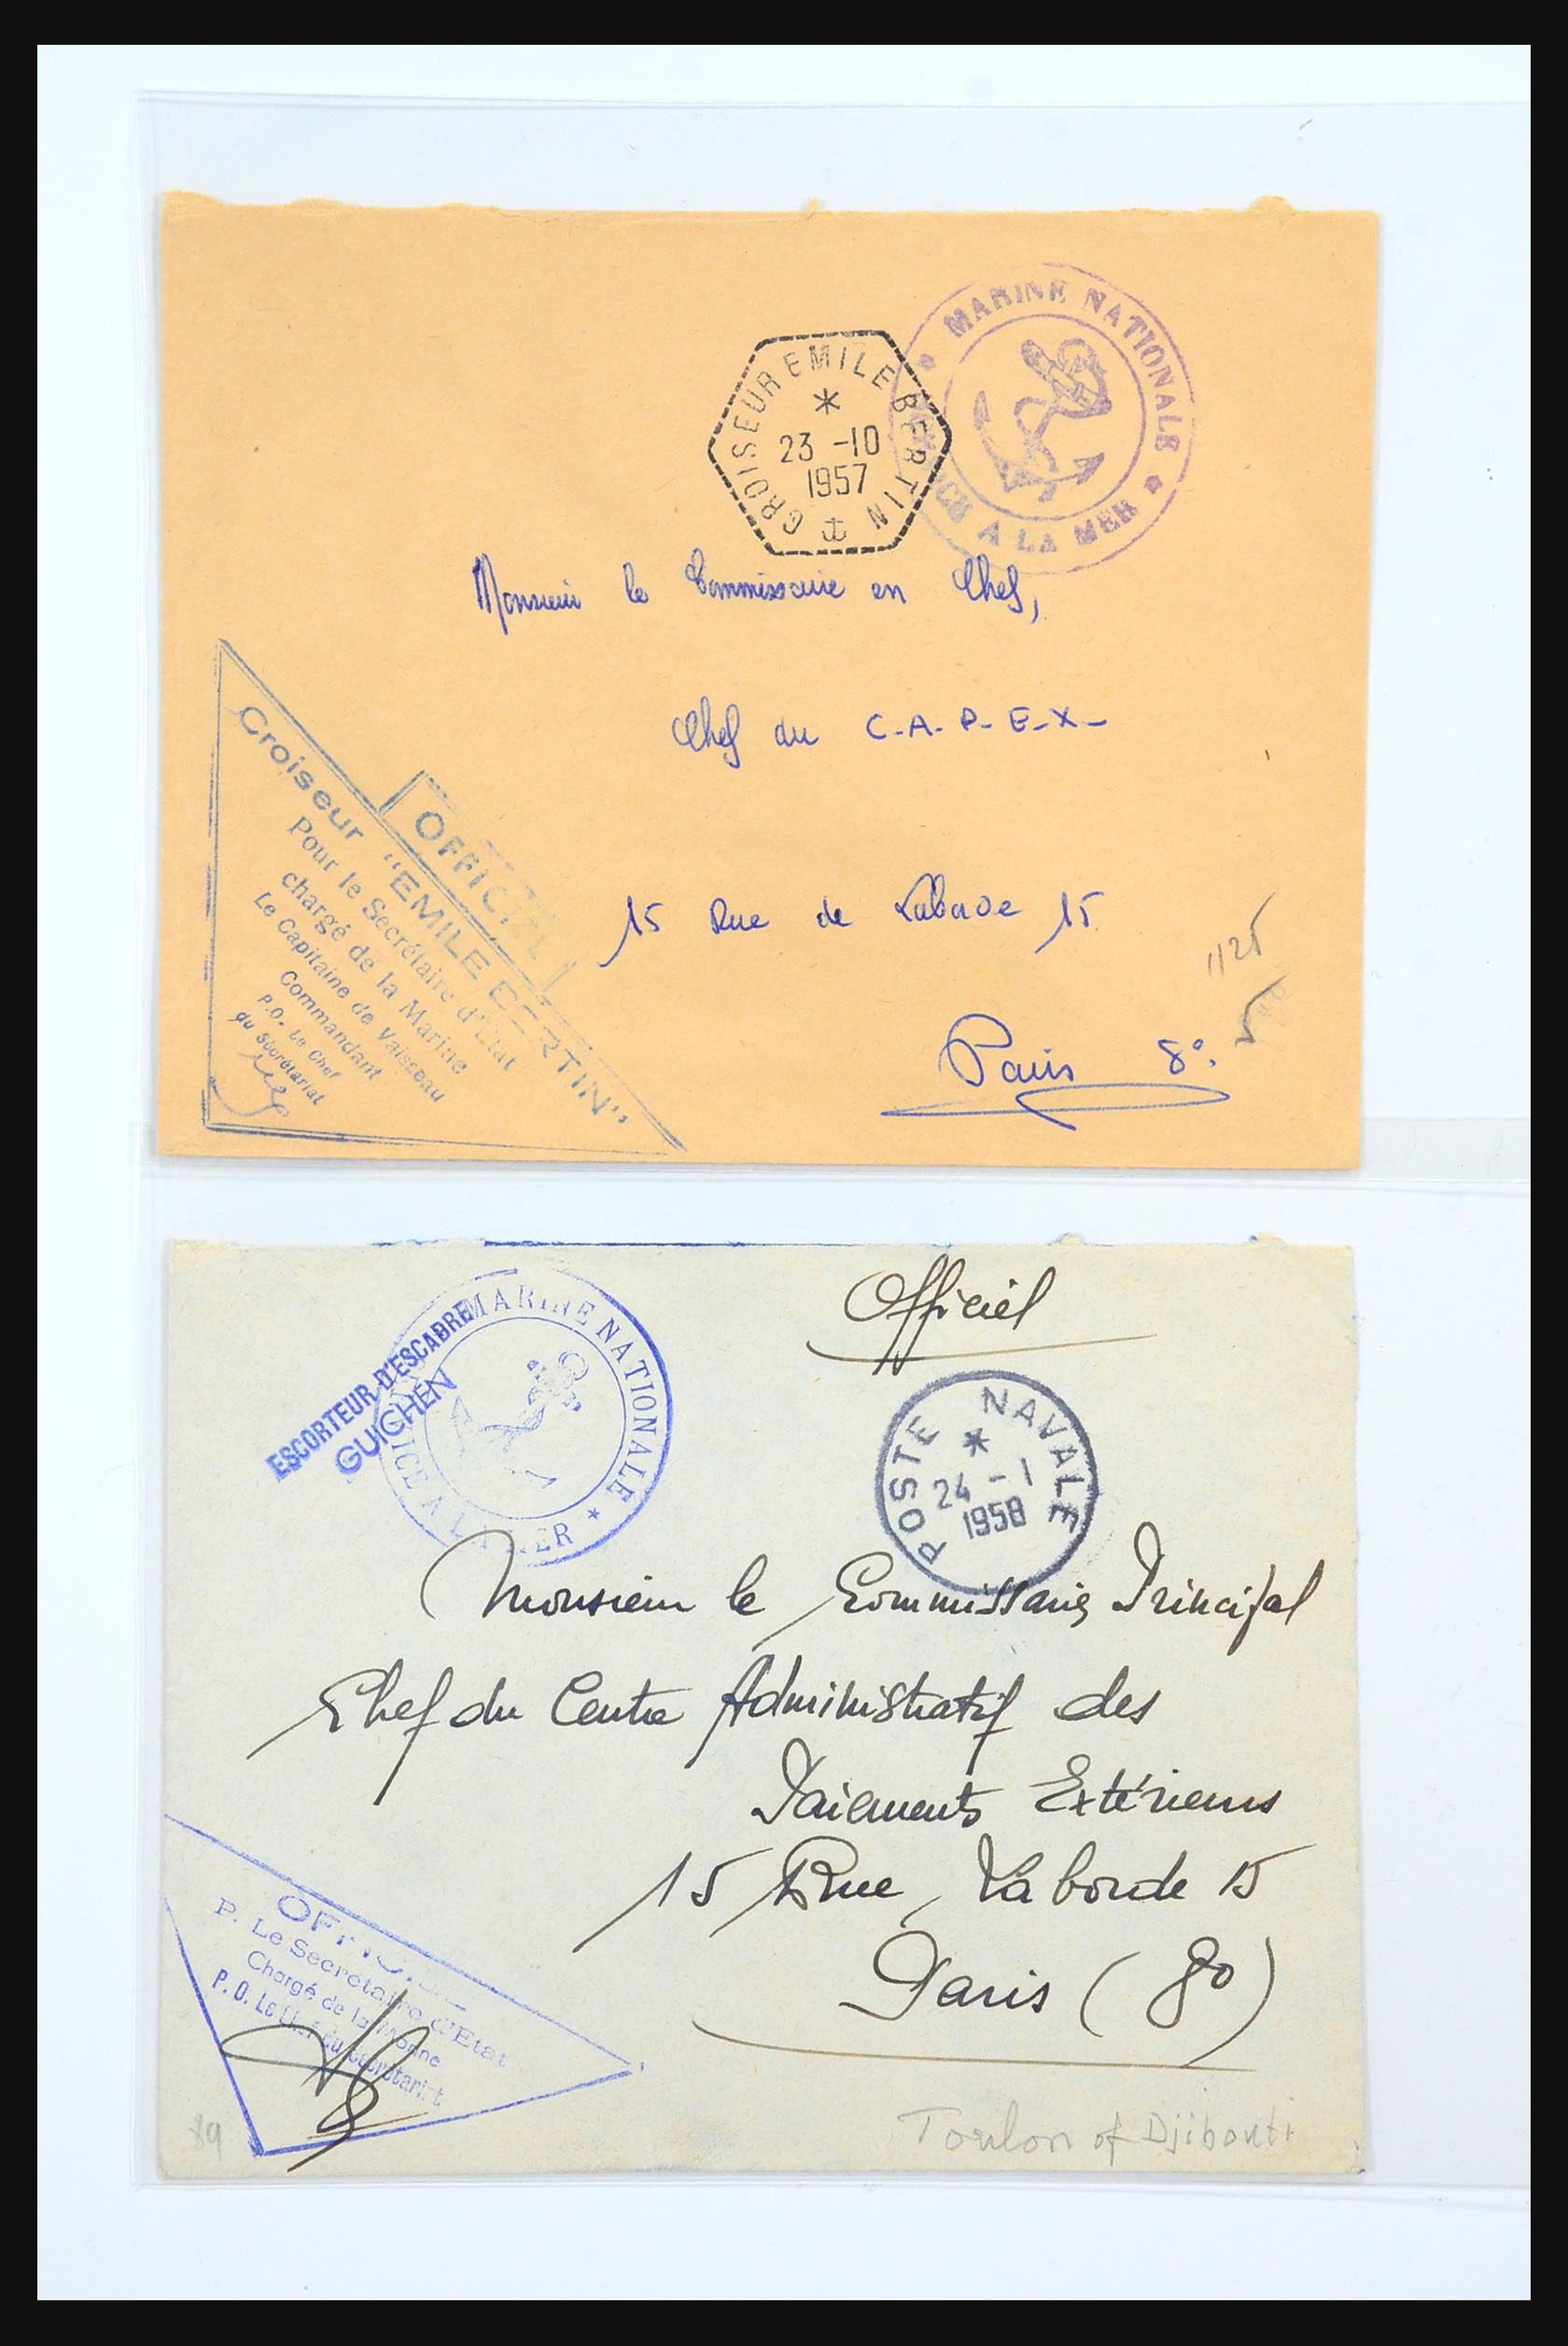 MARINE NATIONALE
A LA MER
CROISEUR EMILE BERTIN
23 -10
1957
Monsieur le Commissaire en Chef,
Chef du C.A.P.E.X-
15 Rue de Laborde 15
Paris 8°.
1125
OFFICIEL
Croiseur "EMILE BERTIN"
Pour le Secrétaire d'Etat
chargé de la Marine
Le Capitaine de Vaisseau
Commandant
P.O. Le Chef
du Secrétariat
Officiel
MARINE NATIONALE
SERVICE A LA MER
ESCORTEUR D'ESCADRE
GUICHEN
POSTE NAVALE
24 -1
1958
Monsieur le Commissaire Principal
Chef du Centre Administratif des
Paiements Extérieurs
15 Rue, La borde 15
Paris (8°)
OFFICIEL
P. Le Secretaire d'Etat
Chargé de la Marine
P. O. Le Chef du Secrétariat
89
Toulon of Djibouti